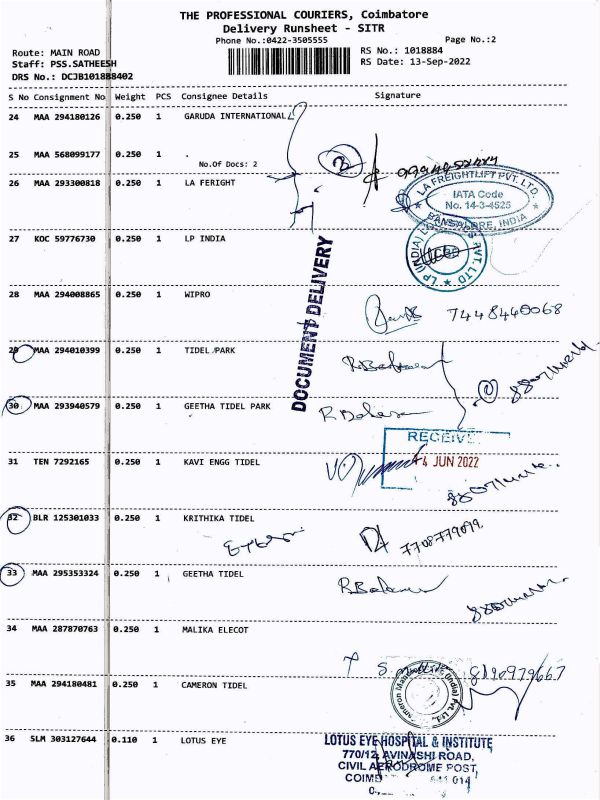 THE PROFESSIONAL COURIERS, Coimbatore
Delivery Runsheet - SITR
Phone No.:0422-3505555
Page No.:2
Route: MAIN ROAD
RS No.: 1018884
Staff: PSS.SATHEESH
RS Date: 13-Sep-2022
DRS No.: DCJB101888402
S No Consignment No Weight PCS Consignee Details Signature
24 MAA 294180126 0.250 1 GARUDA INTERNATIONAL
25 MAA 568099177 0.250 1 .
No.Of Docs: 2
26 MAA 293300818 0.250 1 LA FERIGHT
LA FREIGHTLIFT PVT. LTD.
IATA Code
No. 14-3-4525
BANGALORE, INDIA
27 KOC 59776730 0.250 1 LP INDIA
LP (INDIA) PVT. LTD
DOCUMENT DELIVERY
28 MAA 294008865 0.250 1 WIPRO
7448460068
29 MAA 294010399 0.250 1 TIDEL PARK
30 MAA 293940579 0.250 1 GEETHA TIDEL PARK
RECEIVE
4 JUN 2022
31 TEN 7292165 0.250 1 KAVI ENGG TIDEL
32 BLR 125301033 0.250 1 KRITHIKA TIDEL
33 MAA 295353324 0.250 1 GEETHA TIDEL
34 MAA 287870763 0.250 1 MALIKA ELECOT
8190979667
35 MAA 294180481 0.250 1 CAMERON TIDEL
36 SLM 303127644 0.110 1 LOTUS EYE
LOTUS EYE HOSPITAL & INSTITUTE
770/12, AVINASHI ROAD,
CIVIL AERODROME POST,
COIMB 014